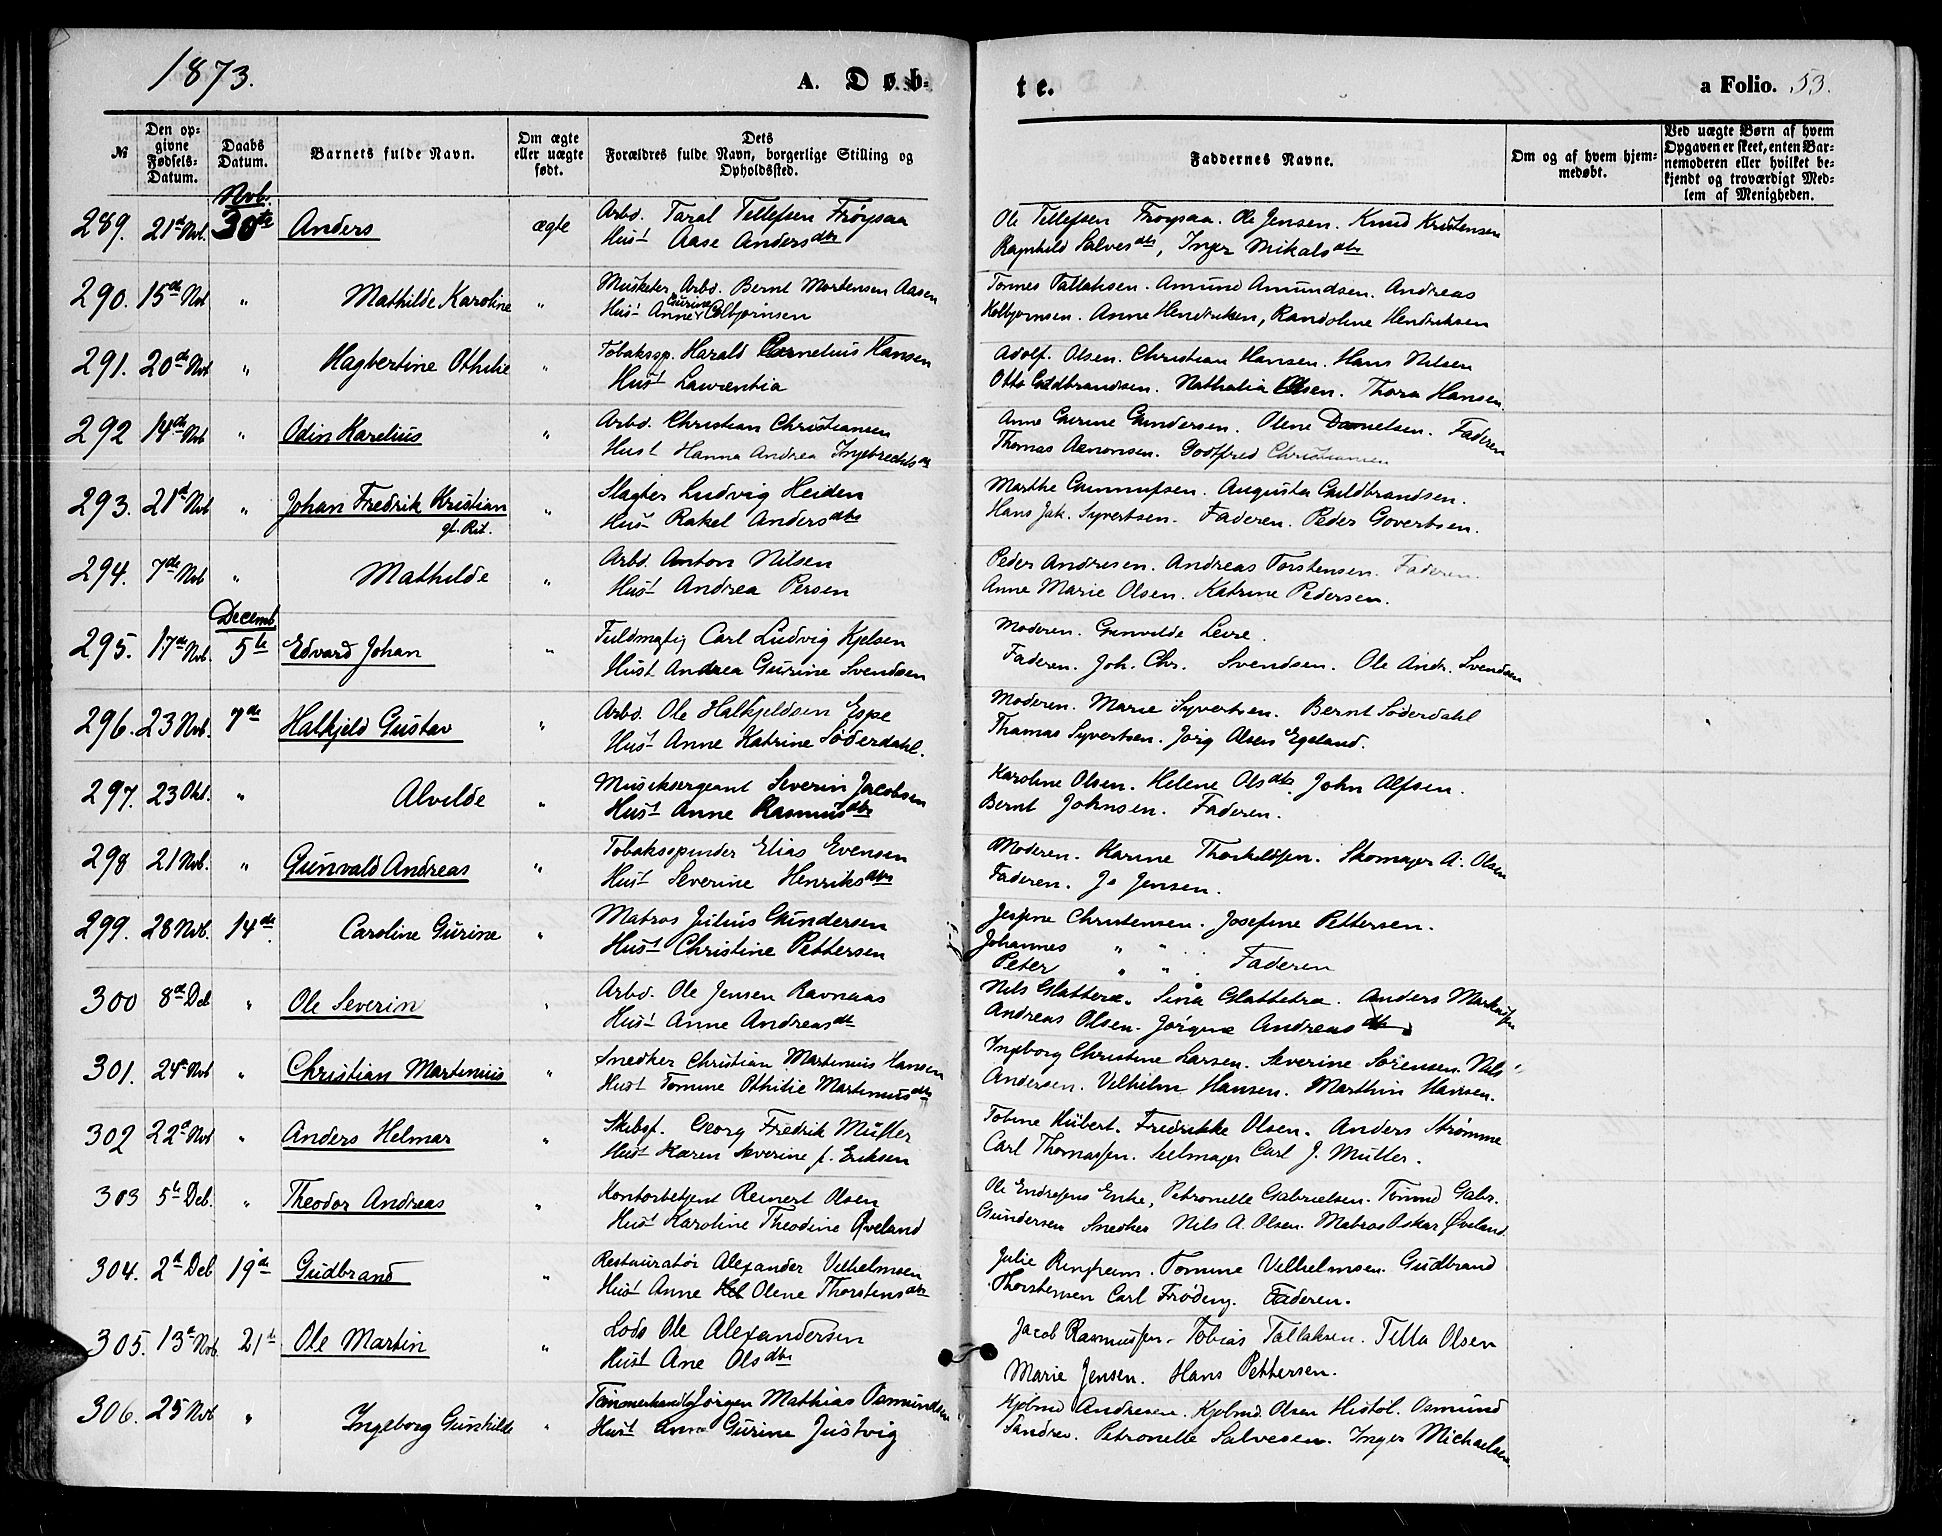 1873. A. Døb-
te. a Folio. 53.
№ Den opgivne Fødsels-Datum. Daabs Datum. Barnets fulde Navn. Om ægte eller uægte født. Dets Forældres fulde Navn, borgerlige Stilling og Opholdssted. Faddernes Navne. Om og af hvem hjemmedøbt. Ved uægte Børn af hvem Opgaven er skeet, enten Barnemoderen eller hvilket bekjendt og troværdigt Medlem af Menigheden.
Nvb.
289. 21de Nvb. 30te Anders ægte Arbd. Taral Tellefsen Frøysaa Ole Tellefsen Frøysaa. Ole Jensen. Knud Kristensen
Hust Aase Andersdtr Ragnhild Salvesdtr, Inger Mikalsdtr
290. 15de Nvb " Mathilde Karoline " Musketer, Arbd. Bernt Mortensen Aasen Tomes Tallaksen. Amund Amundsen. Andreas
Hust Anne Gurine Colbjørnsen Kolbjørnsen. Anne Hendriksen, Randoline Hendriksen
291. 20de Nvb " Hagbertine Othilie " Tobakssp. Harald Cornelius Hansen Adolf. Olsen. Christian Hansen. Hans Nilsen
Hust Laurentia Otto Guldbrandsen. Nathalia Olsen. Thora Hansen.
292 14de Nvb " Odin Karelius " Arbd. Christian Christiansen Anne Gurine Gundersen. Olene Danielsen. Faderen
Hust Hanna Andrea Ingebrechtsdtr Thomas Aanonsen. Godtfred Christiansen
293. 21de Nvb " Johan Fredrik Kristian " Slagter Ludvig Heiden Marthe Gunnufsen. Augusta Guldbrandsen.
gl. Rit. Hust Rakel Andersdtr Hans Jak. Syvertsen. Faderen. Peder Govertsen.
294. 7de Nvb " Mathilde " Arbd. Anton Nilsen Peder Andresen. Andreas Torstensen. Faderen.
Hust Andrea Persen Anne Marie Olsen. Katrine Pedersen.
Decemb
295. 17de Nvb. 5te Edvard Johan " Fuldmægtig Carl Ludvig Kjelsen Moderen. Gunvilde Leire.
Hust Andrea Gurine Svendsen Faderen. Joh. Chr. Svendsen. Ole Andr. Svendsen
296. 23 Nvb. 7de Halkjeld Gustav " Arbd. Ole Halkjeldsen Espe Moderen. Marie Syvertsen. Bernt Söderdahl
Hust Anne Katrine Söderdahl. Thomas Syvertsen. Jörg Olsen Egeland.
297. 23 Okt. " Alvilde " Musiksergeant Severin Jacobsen Karoline Olsen. Helene Olsdtr. John Alfsen.
Hust Anne Rasmusdtr Bernt Johnsen. Faderen.
298 21 Nvb. " Gunvald Andreas " Tobaksspinder Elias Evensen Moderen. Karine Thorkildsen. Skomager A. Olsen
Hust Severine Henriksdtr Faderen. Jo Jensen.
299. 28 Nvb. 14de. Caroline Gurine " Matros Julius Gundersen Jesine Christensen. Josefine Pettersen.
Hust Christine Pettersen Johannes " "
Peter " " Faderen
300 8de Deb " Ole Severin " Arbd. Ole Jensen Ravnaas Nils Glattetre. Sina Glattetra. Anders Markussen
Hust Anne Andreasdt Andreas Olsen. Jörgine Andreasdtr.
301. 24 Nvb " Christian Martinius " Snedker Christian Martinius Hansen Ingeborg Christine Larsen. Severine Sörensen. Nils
Hust Tomine Othilie Martinusdtr Andersen. Vilhelm Hansen. Marthin Hansen.
302 22d Nvb " Anders Helmar " Skibsf. Georg Fredrik Müller Tobine Hübert. Fredrikke Olsen. Anders Strømme
Hust Karen Severine f. Eriksen Carl Thomassen. Seelmager Carl J. Müller.
303 5te Deb. " Theodor Andreas " Kontorbetjent Reinert Olsen Ole Endresens Enke, Petronelle Gabrielsen. Tömd Gabr.
Hust Karoline Theodine Øveland Gundersen Snedker Nils A. Olsen. Matros Oskar Øveland
304. 2d Deb 19de Gudbrand " Restauratør Alexander Vilhelmsen Julie Ringheim. Tomine Vilhelmsen. Gudbrand
Hust Anne Olene Thorstensdtr Thorstensen Carl Frøding. Faderen.
305. 13d Nvb. 21de Ole Martin " Lods Ole Alexandersen Jacob Rasmussen. Tobias Tallaksen. Tilla Olsen
Hust Ane Olsdtr Marie Jensen. Hans Pettersen.
306. 25 Nvb " Ingeborg Gunhilde " Tømmerhandler Jørgen Mathias Osmundsen Kjøbmd Andresen. Kjøbmd. Olsen Osmund
Hust Anne Gurine Justvig Sandrev. Petronelle Salvesen. Inger Michaelsen